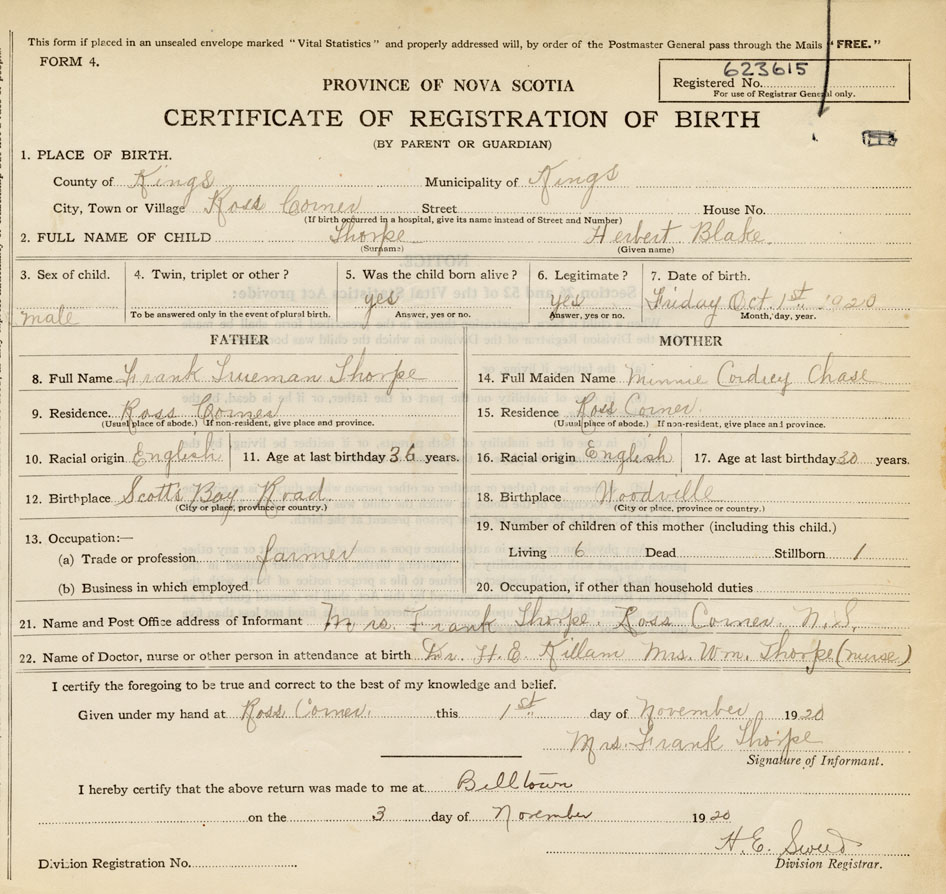 This form if placed in an unsealed envelope marked "Vital Statistics" and properly addressed will, by order of the Postmaster General pass through the Mails "FREE."
FORM 4.
623615
Registered No.
For use of Registrar General only.
PROVINCE OF NOVA SCOTIA
CERTIFICATE OF REGISTRATION OF BIRTH
(BY PARENT OR GUARDIAN)
1. PLACE OF BIRTH.
County of Kings Municipality of Kings
City, Town or Village Ross Corner Street House No.
(If birth occurred in a hospital, give its name instead of Street and Number)
2. FULL NAME OF CHILD Thorpe Herbert Blake
(Surname) (Given name)
3. Sex of child. 4. Twin, triplet or other? 5. Was the child born alive? 6. Legitimate? 7. Date of birth.
male yes yes Friday Oct. 1st. 1920
To be answered only in the event of plural birth. Answer, yes or no. Answer, yes or no. Month, day, year.
FATHER MOTHER
8. Full Name Frank Trueman Thorpe 14. Full Maiden Name Minnie Cordrey Chase
9. Residence. Ross Corner 15. Residence Ross Corner.
(Usual place of abode.) If non-resident, give place and province. (Usual place of abode.) If non-resident, give place and province.
10. Racial origin English 11. Age at last birthday 36 years. 16. Racial origin English 17. Age at last birthday 30 years.
12. Birthplace Scotts Bay Road 18. Birthplace Woodville
(City or place, province or country.) (City or place, province or country.)
13. Occupation:— 19. Number of children of this mother (including this child.)
(a) Trade or profession farmer Living 6 Dead Stillborn 1
(b) Business in which employed 20. Occupation, if other than household duties
21. Name and Post Office address of Informant Mrs. Frank Thorpe. Ross Corner. N.S.
22. Name of Doctor, nurse or other person in attendance at birth Dr. H. E. Killam Mrs. Wm. Thorpe (nurse)
I certify the foregoing to be true and correct to the best of my knowledge and belief.
Given under my hand at Ross Corner. this 1st day of November 1920
Mrs. Frank Thorpe
Signature of Informant.
I hereby certify that the above return was made to me at Billtown
on the 3 day of November 1920
H. E.
Division Registrar.
Division Registration No.